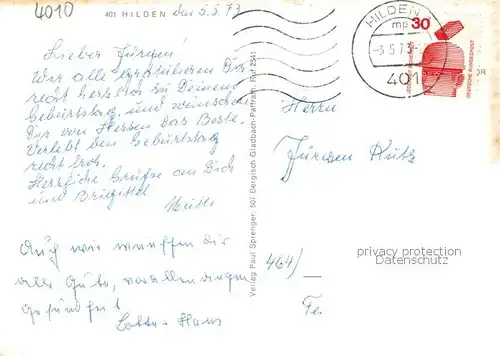 4010
401 HILDEN den 5.5.73
Lieber Jürgen!
Wir alle gratulieren Dir
recht herzlich zu Deinem
Geburtstag und wünschen
Dir von Herzen das Beste.
Verlebt den Geburtstag
recht froh.
Herzliche Grüße an Dich
und Brigitte
Auch wir wünschen dir
alles Gute, vor allen dingen
Gesundheit
Lotte + Hans
Verlag: Paul Sprenger, 507 Bergisch Gladbach-Paffrath, Ruf 2541
HILDEN
mp
-3.5.73-
401
30
DEUTSCHE BUNDESPOST
Herrn
Jürgen Kutz
privacy protection
Datenschutz
464/
Fe.